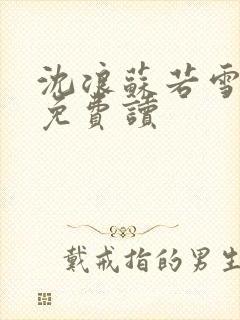 沈浪蘇若雪
免費讀
戴戒指的男生